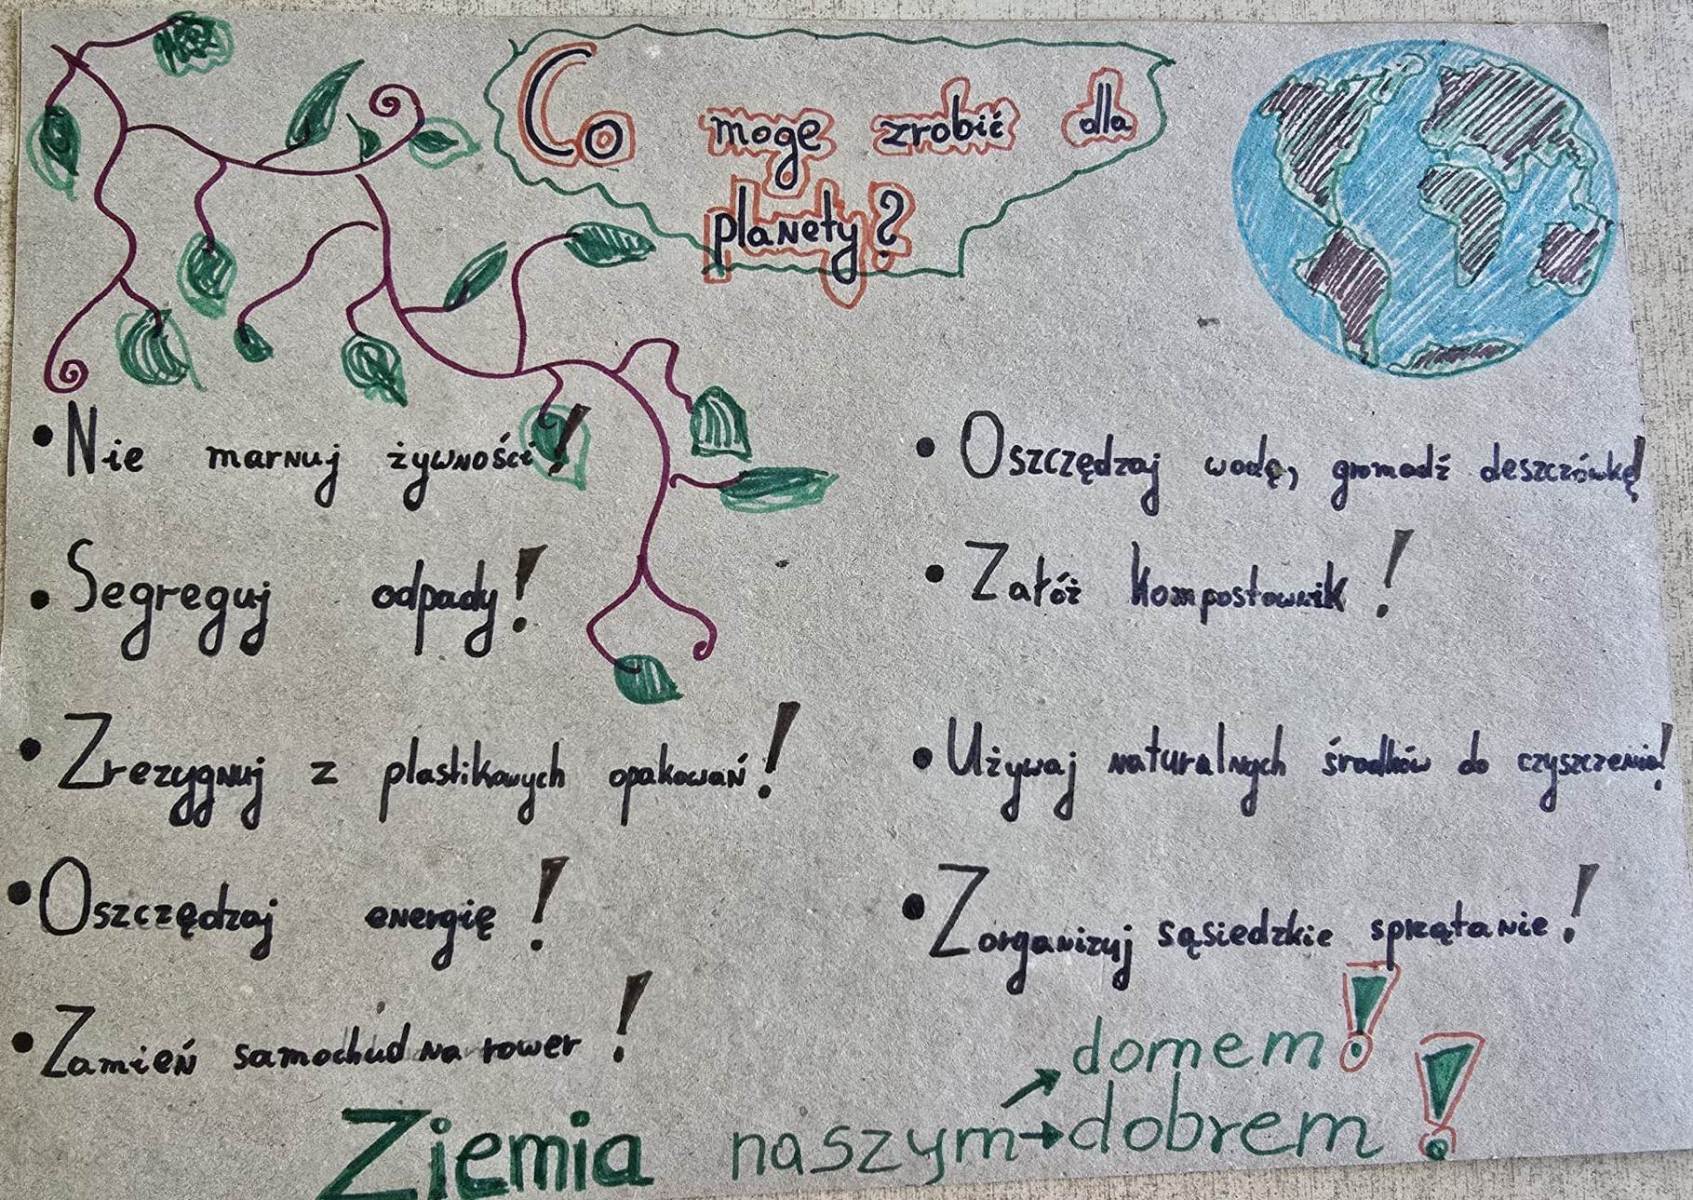 Co moge zrobić dla
planety?
• Nie marnuj żywności!
• Segreguj odpady!
• Zrezygnuj z plastikowych opakowań!
• Oszczędzaj energię!
• Zamień samochud na rower!
• Oszczędzaj wodę, gromadź deszczówkę!
• Załóż kompostownik!
• Używaj naturalnych środków do czyszczenia!
• Zorganizuj sąsiedzkie sprzątanie!
domem!
Ziemia naszym → dobrem!